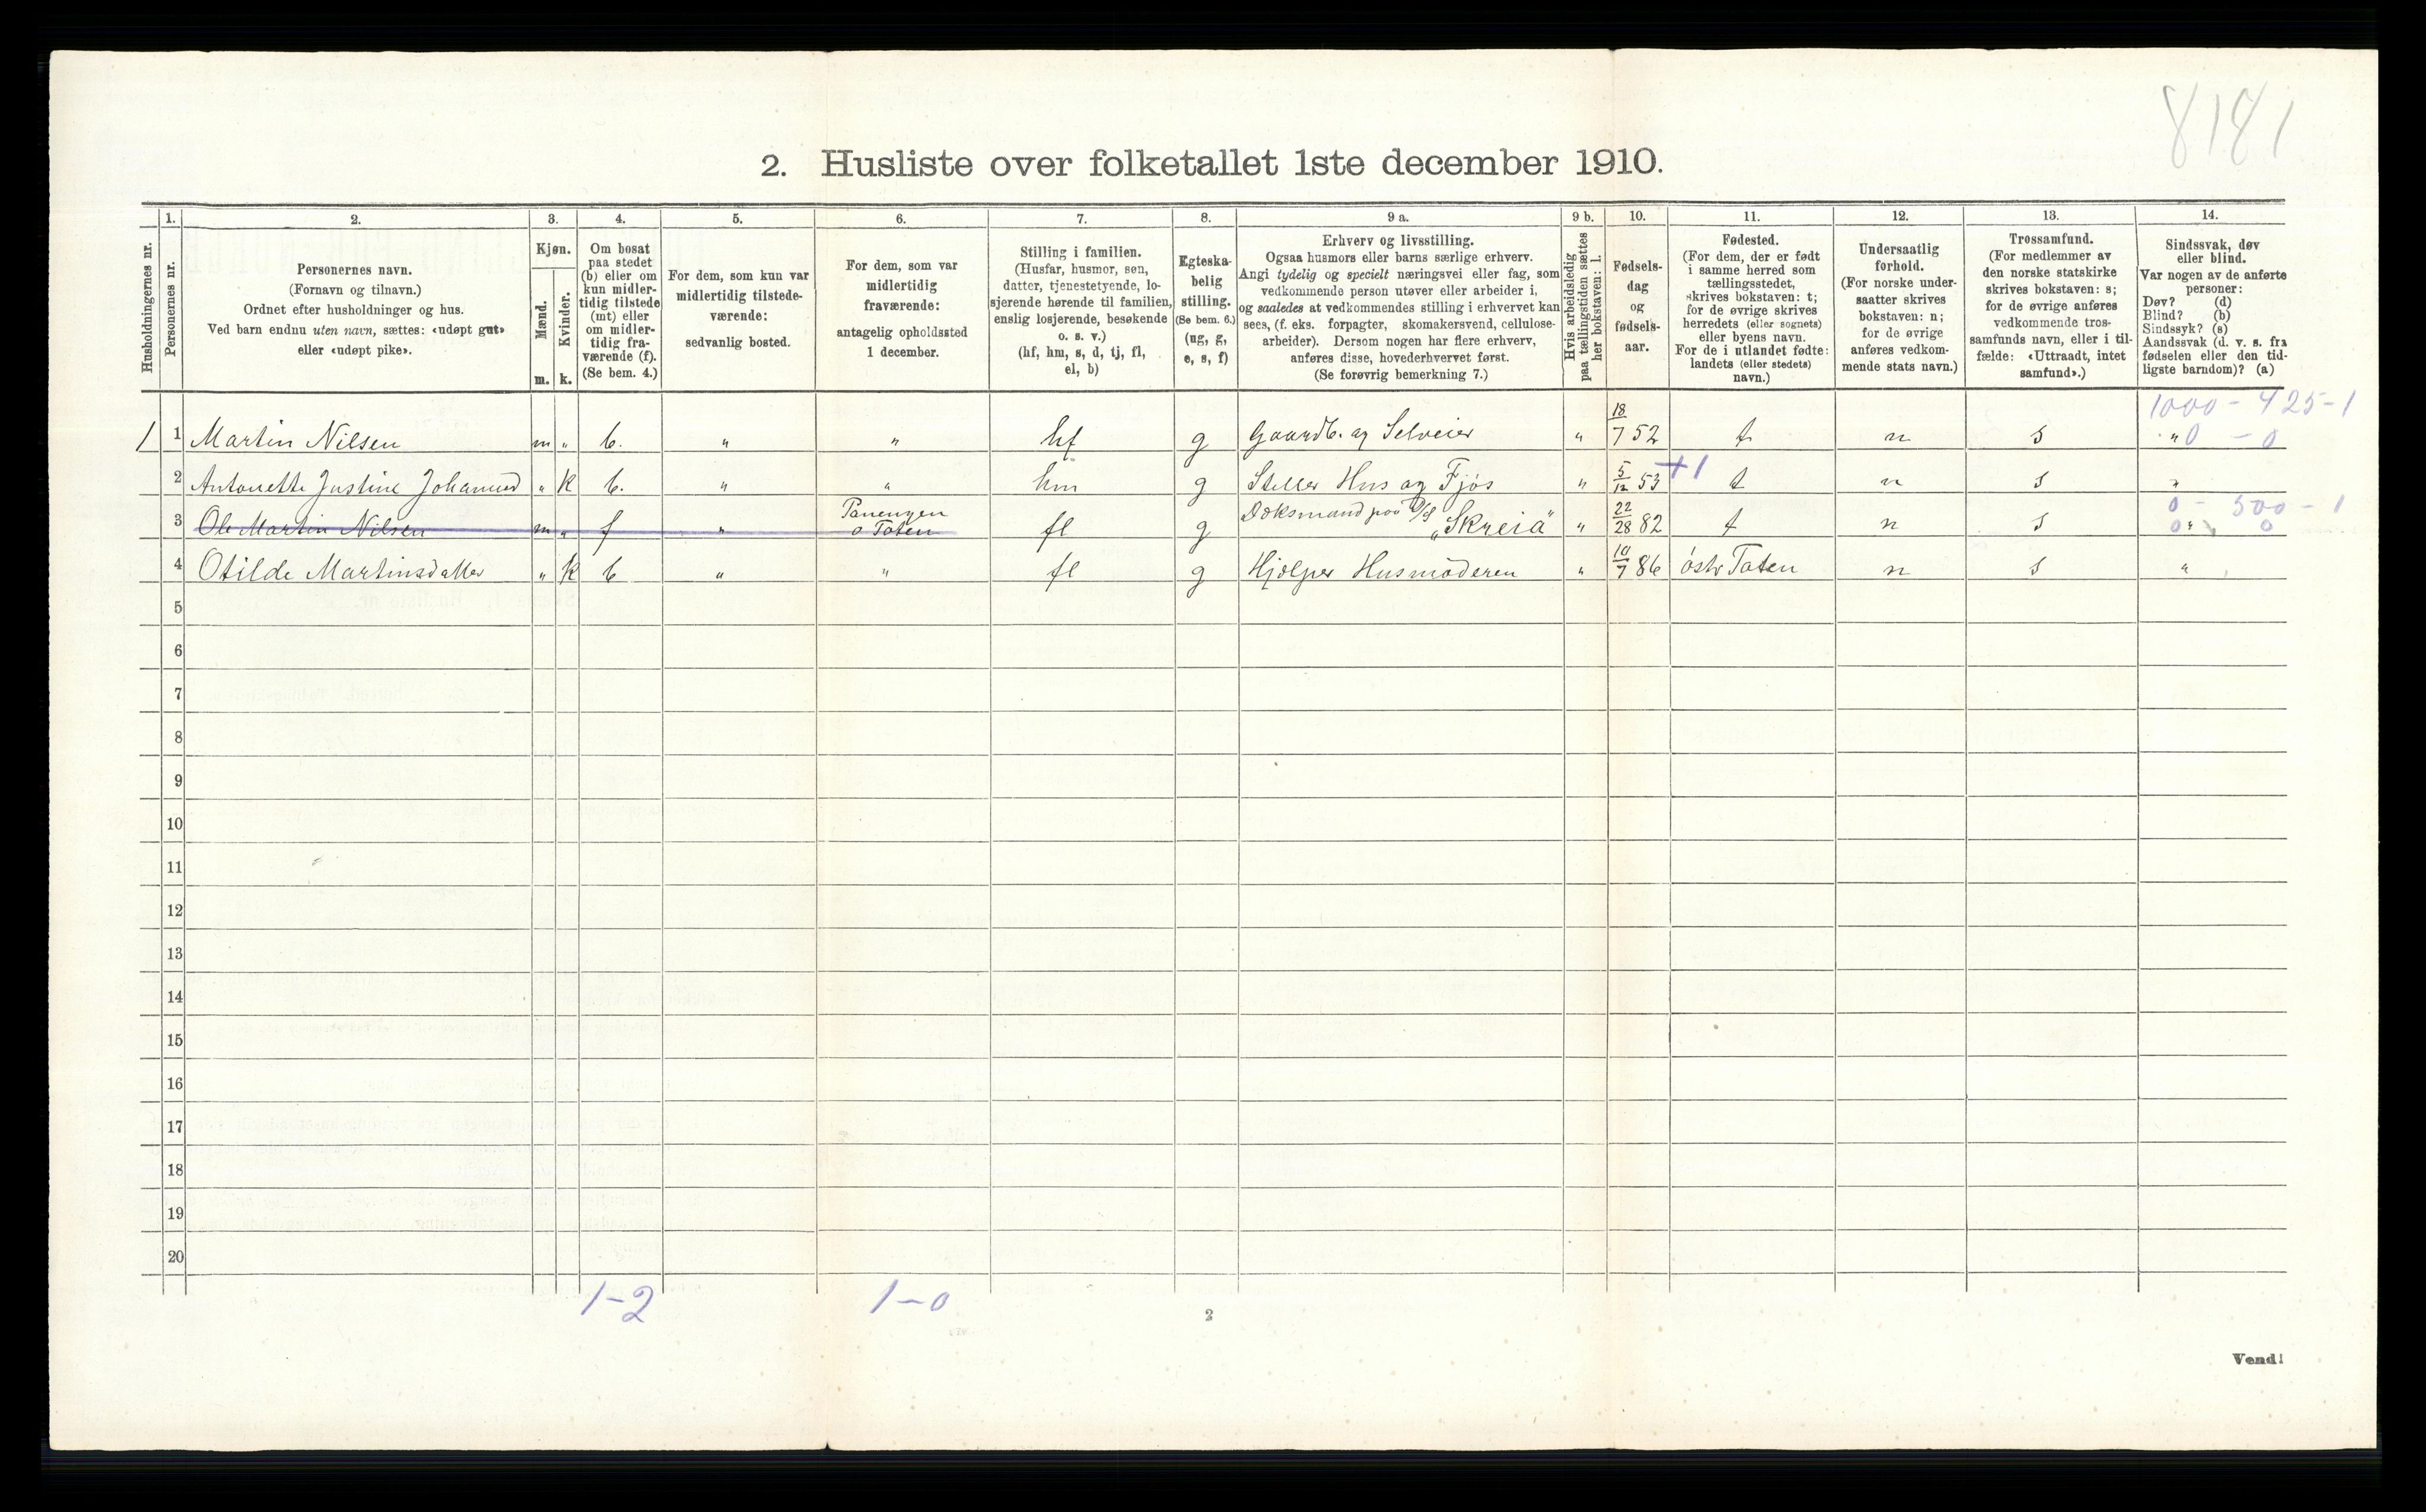 8181
2. Husliste over folketallet 1ste december 1910.
Husholdningernes nr.
1.
Personernes nr.
2.
Personernes navn.
(Fornavn og tilnavn.)
Ordnet efter husholdninger og hus.
Ved barn endnu uten navn, sættes: «udøpt gut»
eller «udøpt pike».
3.
Kjøn.
Mænd.
m.
Kvinder.
k.
4.
Om bosat
paa stedet
(b) eller om
kun midler-
tidig tilstede
(mt) eller
om midler-
tidig fra-
værende (f).
(Se bem. 4.)
5.
For dem, som kun var
midlertidig tilstede-
værende:
sedvanlig bosted.
6.
For dem, som var
midlertidig
fraværende:
antagelig opholdssted
1 december.
7.
Stilling i familien.
(Husfar, husmor, søn,
datter, tjenestetyende, lo-
sjerende hørende til familien,
enslig losjerende, besøkende
o. s. v.)
(hf, hm, s, d, tj, fl,
el, b)
8.
Egteska-
belig
stilling.
(Se bem. 6.)
(ug, g,
e, s, f)
9 a.
Erhverv og livsstilling.
Ogsaa husmors eller barns særlige erhverv.
Angi tydelig og specielt næringsvei eller fag, som
vedkommende person utøver eller arbeider i,
og saaledes at vedkommendes stilling i erhvervet kan
sees, (f. eks. forpagter, skomakersvend, cellulose-
arbeider). Dersom nogen har flere erhverv,
anføres disse, hovederhvervet først.
(Se forøvrig bemerkning 7.)
9 b.
Hvis arbeidsledig
paa tællingstiden sættes
her bokstaven: l.
10.
Fødsels-
dag
og
fødsels-
aar.
11.
Fødested.
(For dem, der er født
i samme herred som
tællingsstedet,
skrives bokstaven: t;
for de øvrige skrives
herredets (eller sognets)
eller byens navn.
For de i utlandet fødte:
landets (eller stedets)
navn.)
12.
Undersaatlig
forhold.
(For norske under-
saatter skrives
bokstaven: n;
for de øvrige
anføres vedkom-
mende stats navn.)
13.
Trossamfund.
(For medlemmer av
den norske statskirke
skrives bokstaven: s;
for de øvrige anføres
vedkommende tros-
samfunds navn, eller i til-
fælde: «Uttraadt, intet
samfund».)
14.
Sindssvak, døv
eller blind.
Var nogen av de anførte
personer:
Døv? (d)
Blind? (b)
Sindssyk? (s)
Aandssvak (d. v. s. fra
fødselen eller den tid-
ligste barndom)? (a)
1000 - 425 - 1
1 1 Martin Nilsen m " b. " " hf g Gaardb. og Selveier " 18/7 52 t n s " 0 - 0
2 Antonette Justine Johannesd " k b. " " hm g Steller Hus og Fjøs " 5/12 53 +1 t n s "
0 - 500 - 1
3 Ole Martin Nilsen m " f " Panengen o Toten fl g Doksmand paa D/S „Skreia" " 22/28 82 t n s 0 " 0
4 Otilde Martinsdatter " k b " " fl g Hjelper Husmoderen " 10/7 86 østr Toten n s "
5
6
7
8
9
10
11
12
13
14
15
16
17
18
19
20
1-2
1-0
2
Vend!